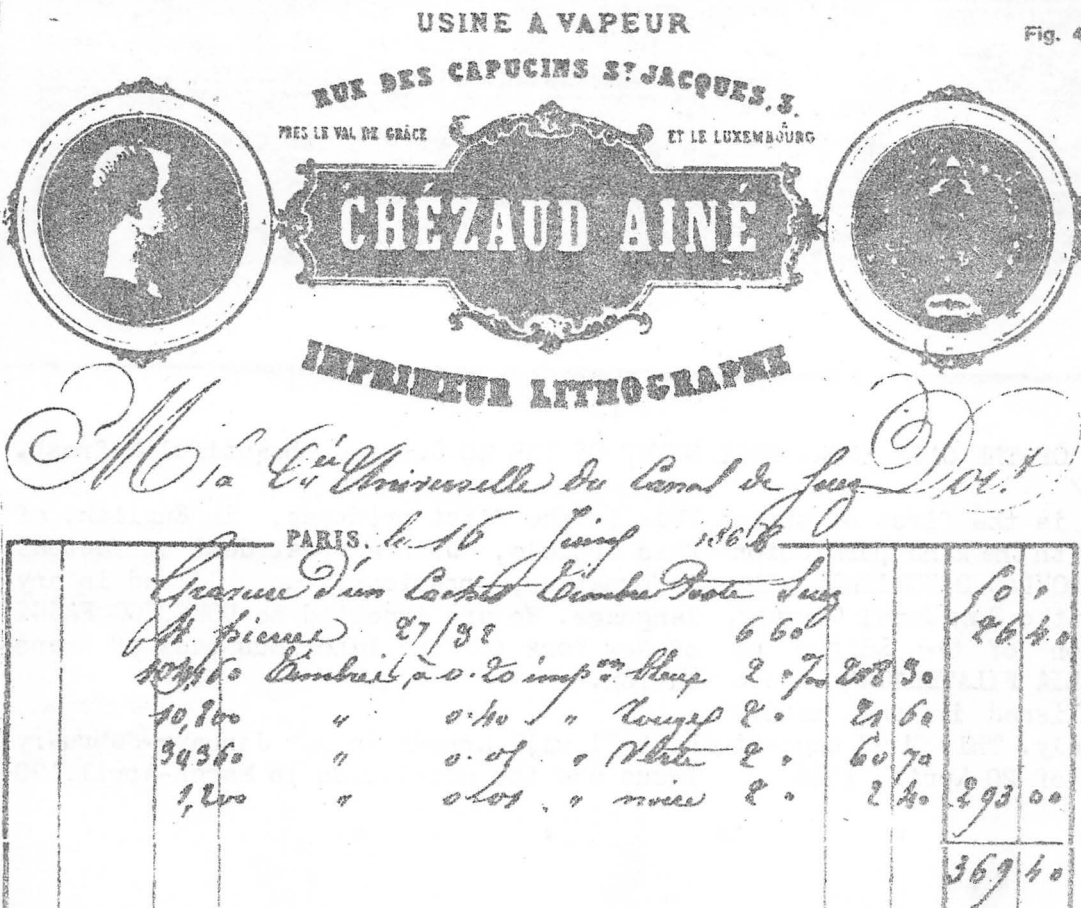 USINE A VAPEUR
Fig. 4
RUE DES CAPUCINS ST JACQUES, 3.
PRES LE VAL DE GRÂCE ET LE LUXEMBOURG
CHÉZAUD AINÉ
IMPRIMEUR LITHOGRAPHE
M la Cie Universelle du Canal de Suez Doit
PARIS, le 16 Juin 1868
Gravure d'un Cachet Timbre Poste Suez 50 "
4 pierres 27/38 6 60 26 40
Timbres, à 0.20 impon bleue 2 " 208 30
10,800 " 0.40 " rouge 2 " 21 60
30,360 " 0.05 " verte 2 " 60 70
1,200 " 0.01 " noire 2 " 2 40 293 00
369 40